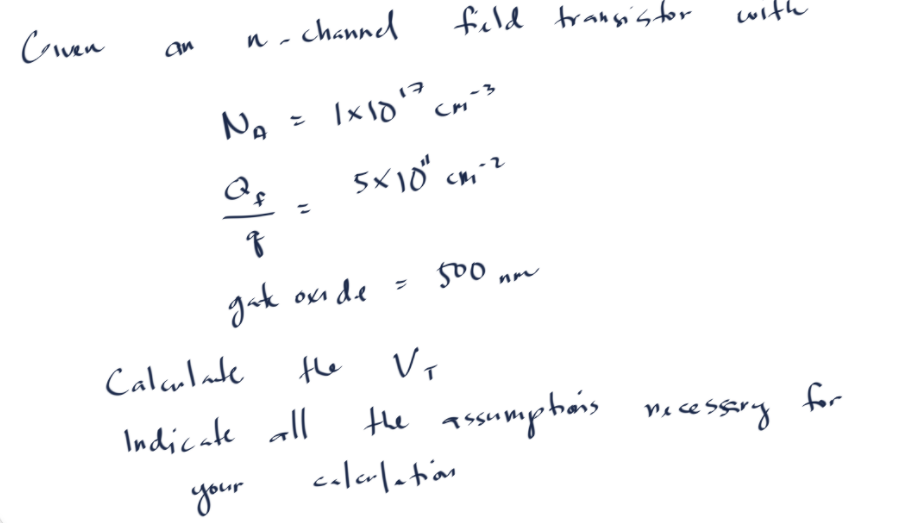 Given an n-channel field transistor with
N_A = 1×10^17 cm^-3
Q_f / q = 5×10^11 cm^-2
gate oxide = 500 nm
Calculate the V_T
Indicate all the assumptions necessary for
your calculation